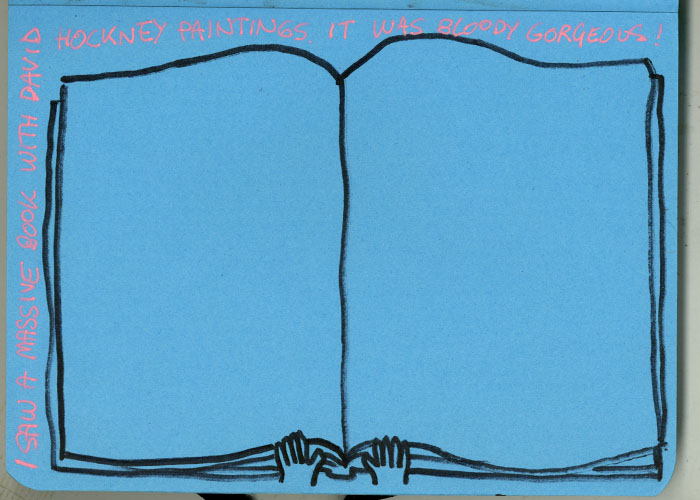 I SAW A MASSIVE BOOK WITH DAVID
HOCKNEY PAINTINGS. IT WAS BLOODY GORGEOUS!